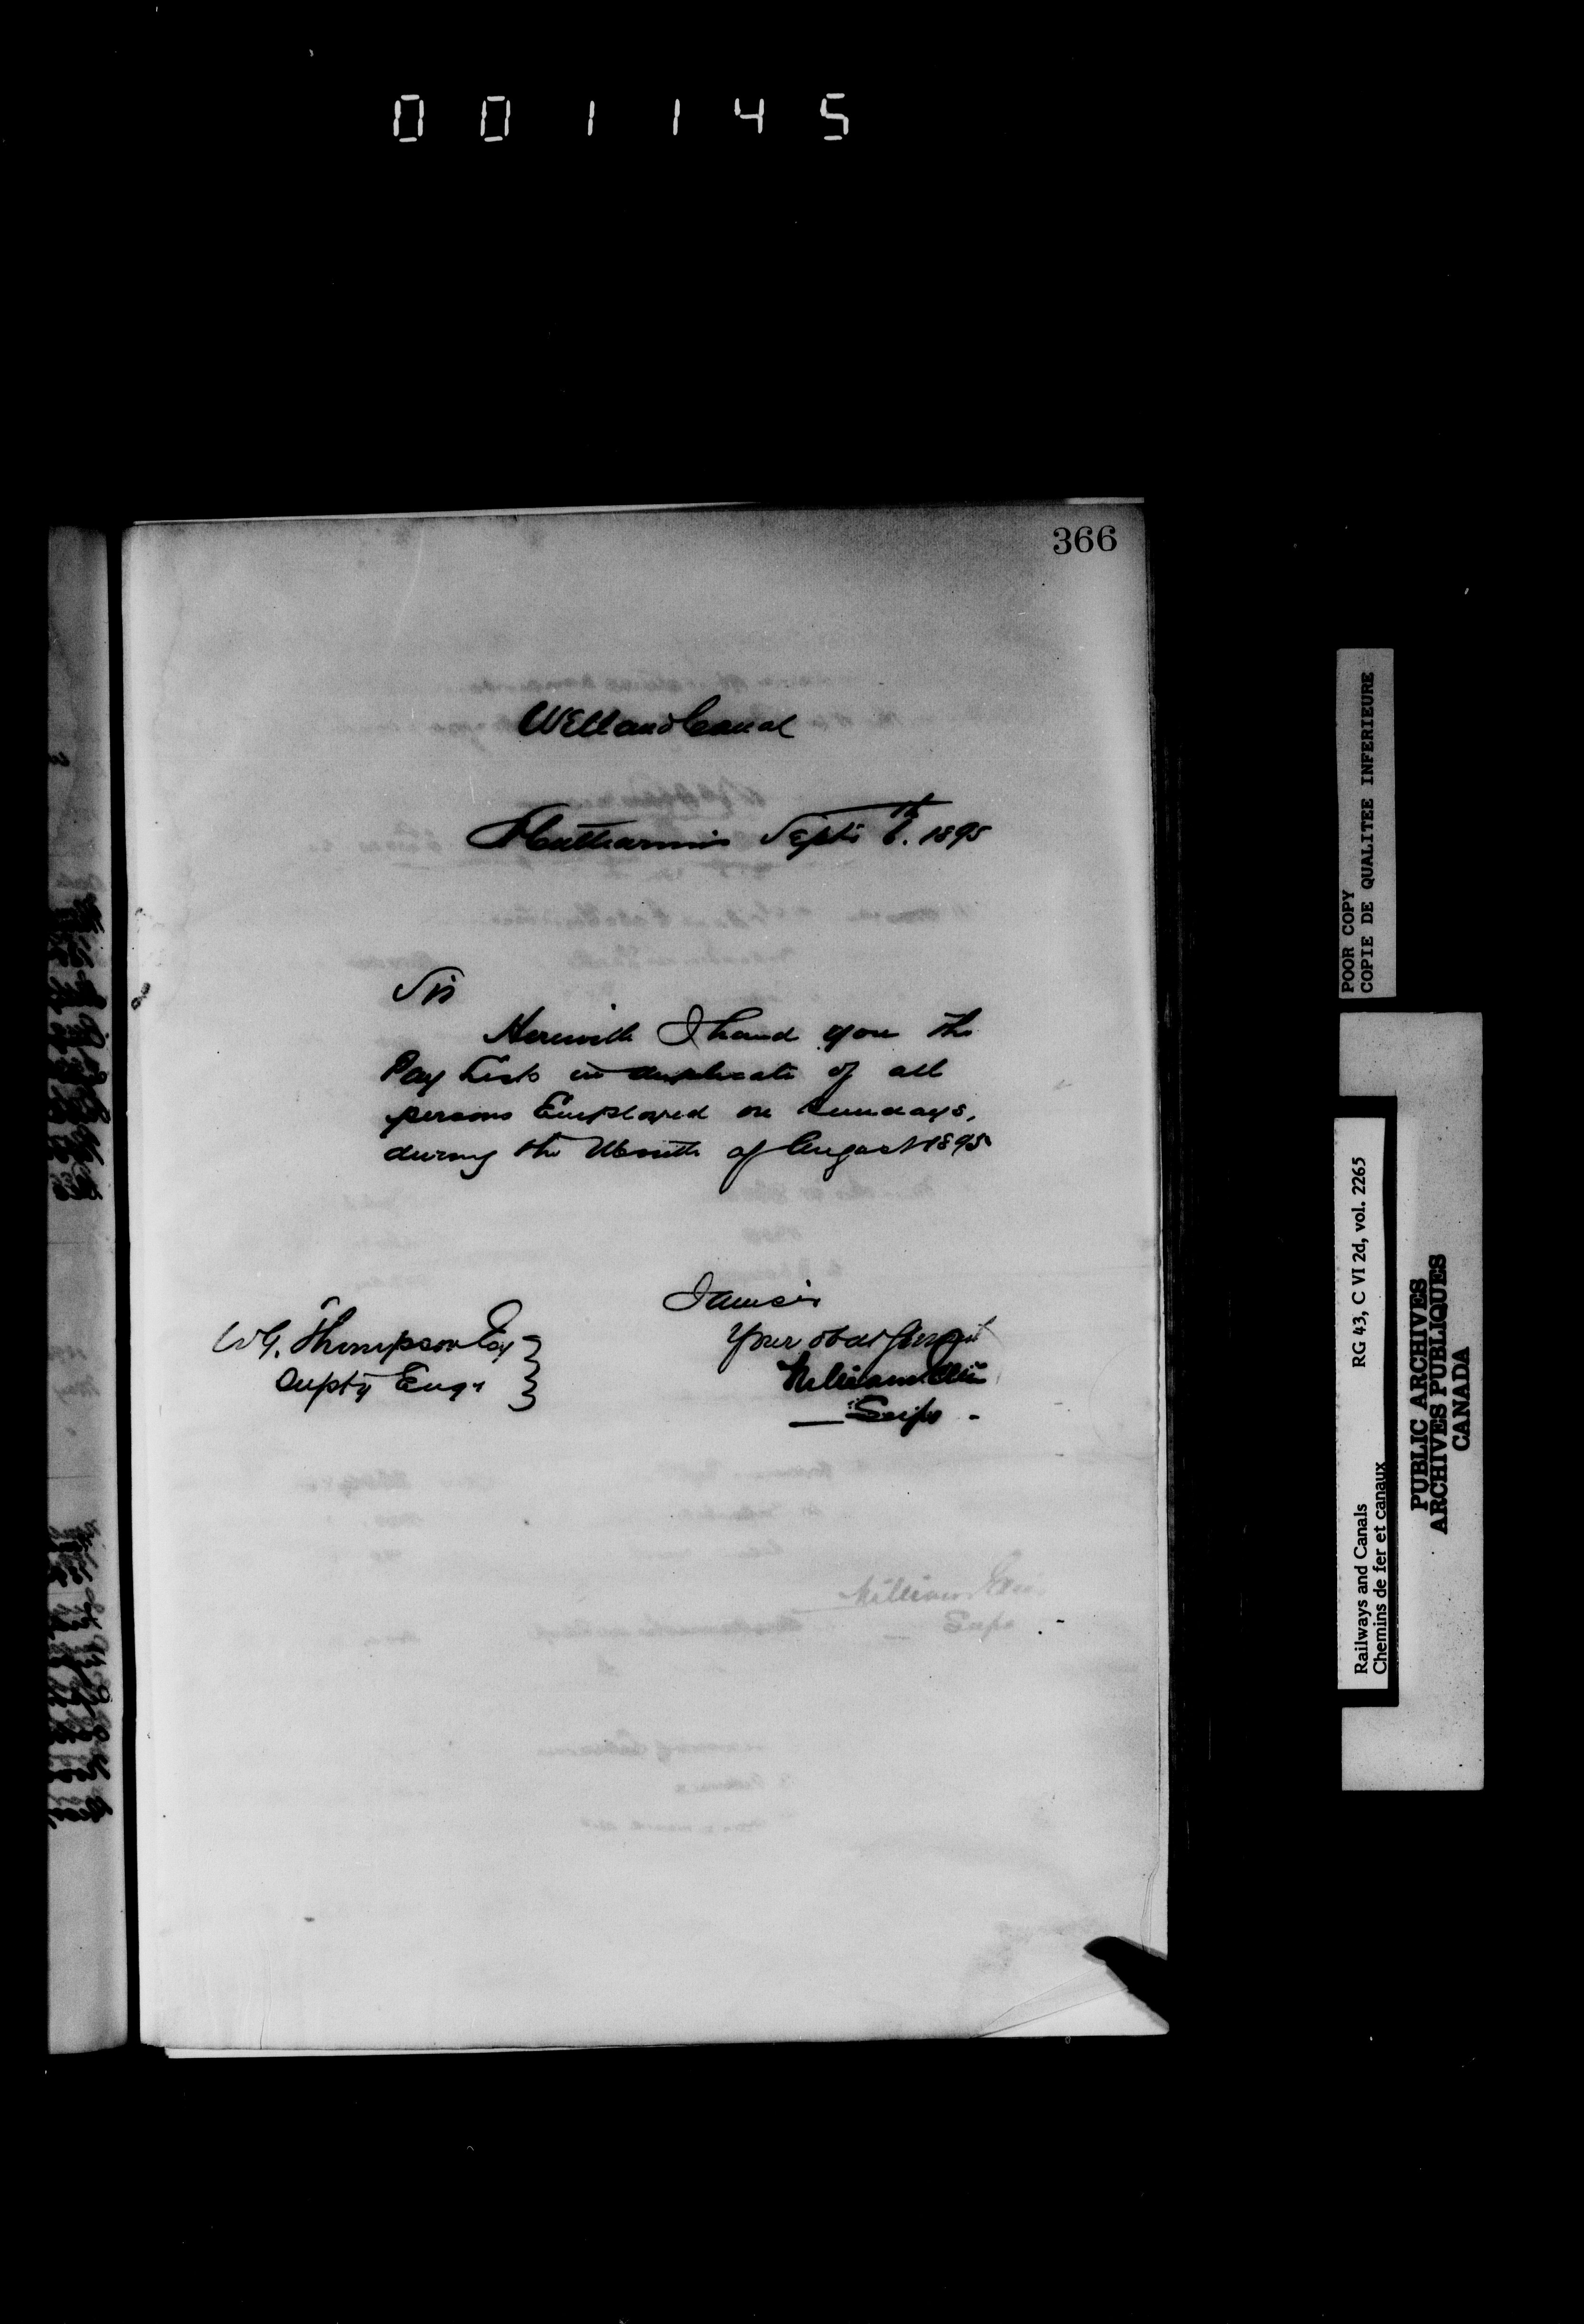 001145
366
Welland Canal
St Catharines Sept 6th. 1895
Sir
Herewith I hand you the
Pay Lists in duplicate of all
persons Employed on Sundays,
during the Month of August 1895
I am sir
Your obdt Servant
William Ellis
Supt
W G. Thompson Esq
Supty Engr
William Ellis
Supt
POOR COPY
COPIE DE QUALITEE INFERIEURE
Railways and Canals RG 43, C VI 2d, vol. 2265
Chemins de fer et canaux
PUBLIC ARCHIVES
ARCHIVES PUBLIQUES
CANADA